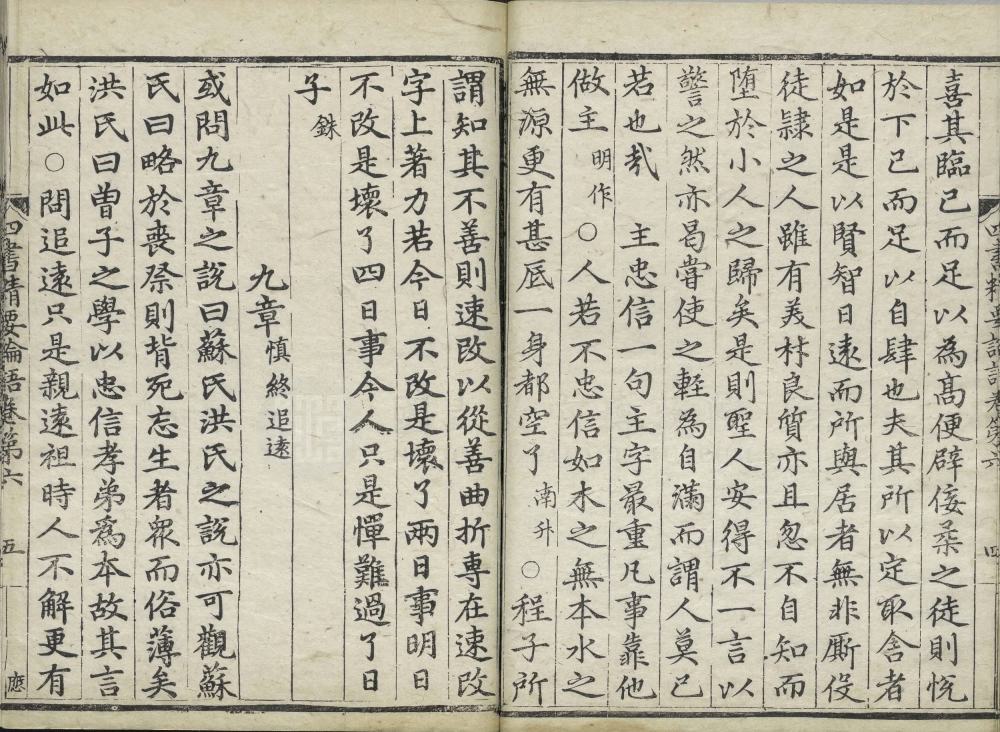 喜其臨己而足以為高便辟佞柔之徒則恱
於下己而足以自肆也夫其所以定取舍者
如是是以賢智日遠而所與居者無非厮役
徒隷之人雖有美材良質亦且忽不自知而
墮於小人之歸矣是則聖人安得不一言以
警之然亦曷嘗使之軽為自滿而謂人莫已
若也㢤　主忠信一句主字最重凡事靠他
做主明作○人若不忠信如木之無本水之
無源更有甚底一身都空了南升○程子所
四書精要論語卷第六　四
謂知其不善則速改以從善曲折専在速改
字上著力若今日不改是壊了兩日事明日
不改是壊了四日事今人只是憚難過了日
子銖
九章慎終追遠
或問九章之説曰蘇氏洪氏之説亦可觀蘇
氏曰略於喪祭則背死忘生者衆而俗薄矣
洪氏曰曽子之學以忠信孝弟爲本故其言
如此○問追遠只是親遠祖時人不解更有
四書精要論語卷第六　五　應